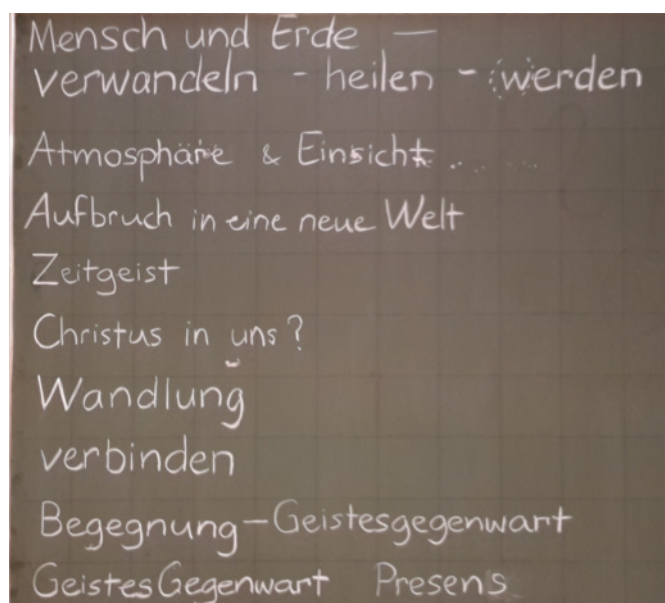 Mensch und Erde —
verwandeln - heilen - (werden
Atmosphäre & Einsicht ... ...
Aufbruch in eine neue Welt
Zeitgeist
Christus in uns?
Wandlung
verbinden
Begegnung - Geistesgegenwart
GeistesGegenwart Presens